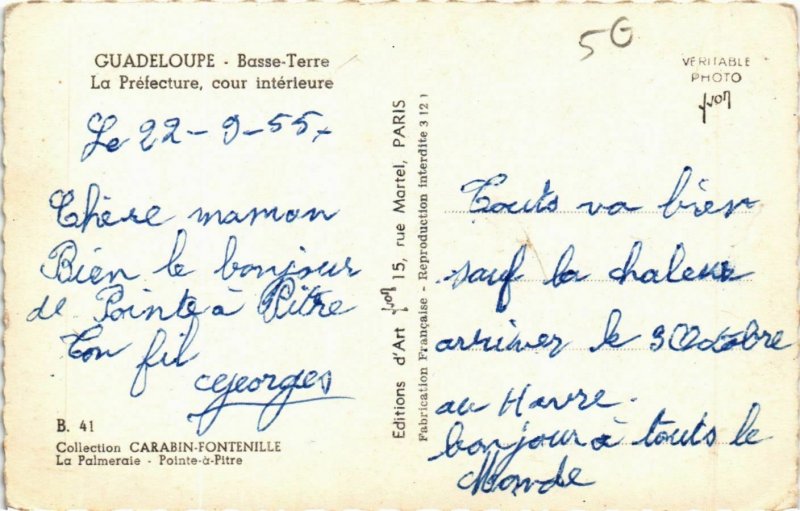 GUADELOUPE - Basse-Terre
La Préfecture, cour intérieure
Le 22-9-55
Chère maman
Bien le bonjour
de Pointe à Pitre
Ton fil
Georges
B. 41
Collection CARABIN-FONTENILLE
La Palmeraie - Pointe-à-Pitre
Editions d'Art yvon 15, rue Martel, PARIS
Fabrication Française - Reproduction interdite 3 12 1
50
VÉRITABLE
PHOTO
yvon
Touts va bien
sauf la chaleur
arriver le 3 Octobre
au Havre.
bonjour à touts le
Monde